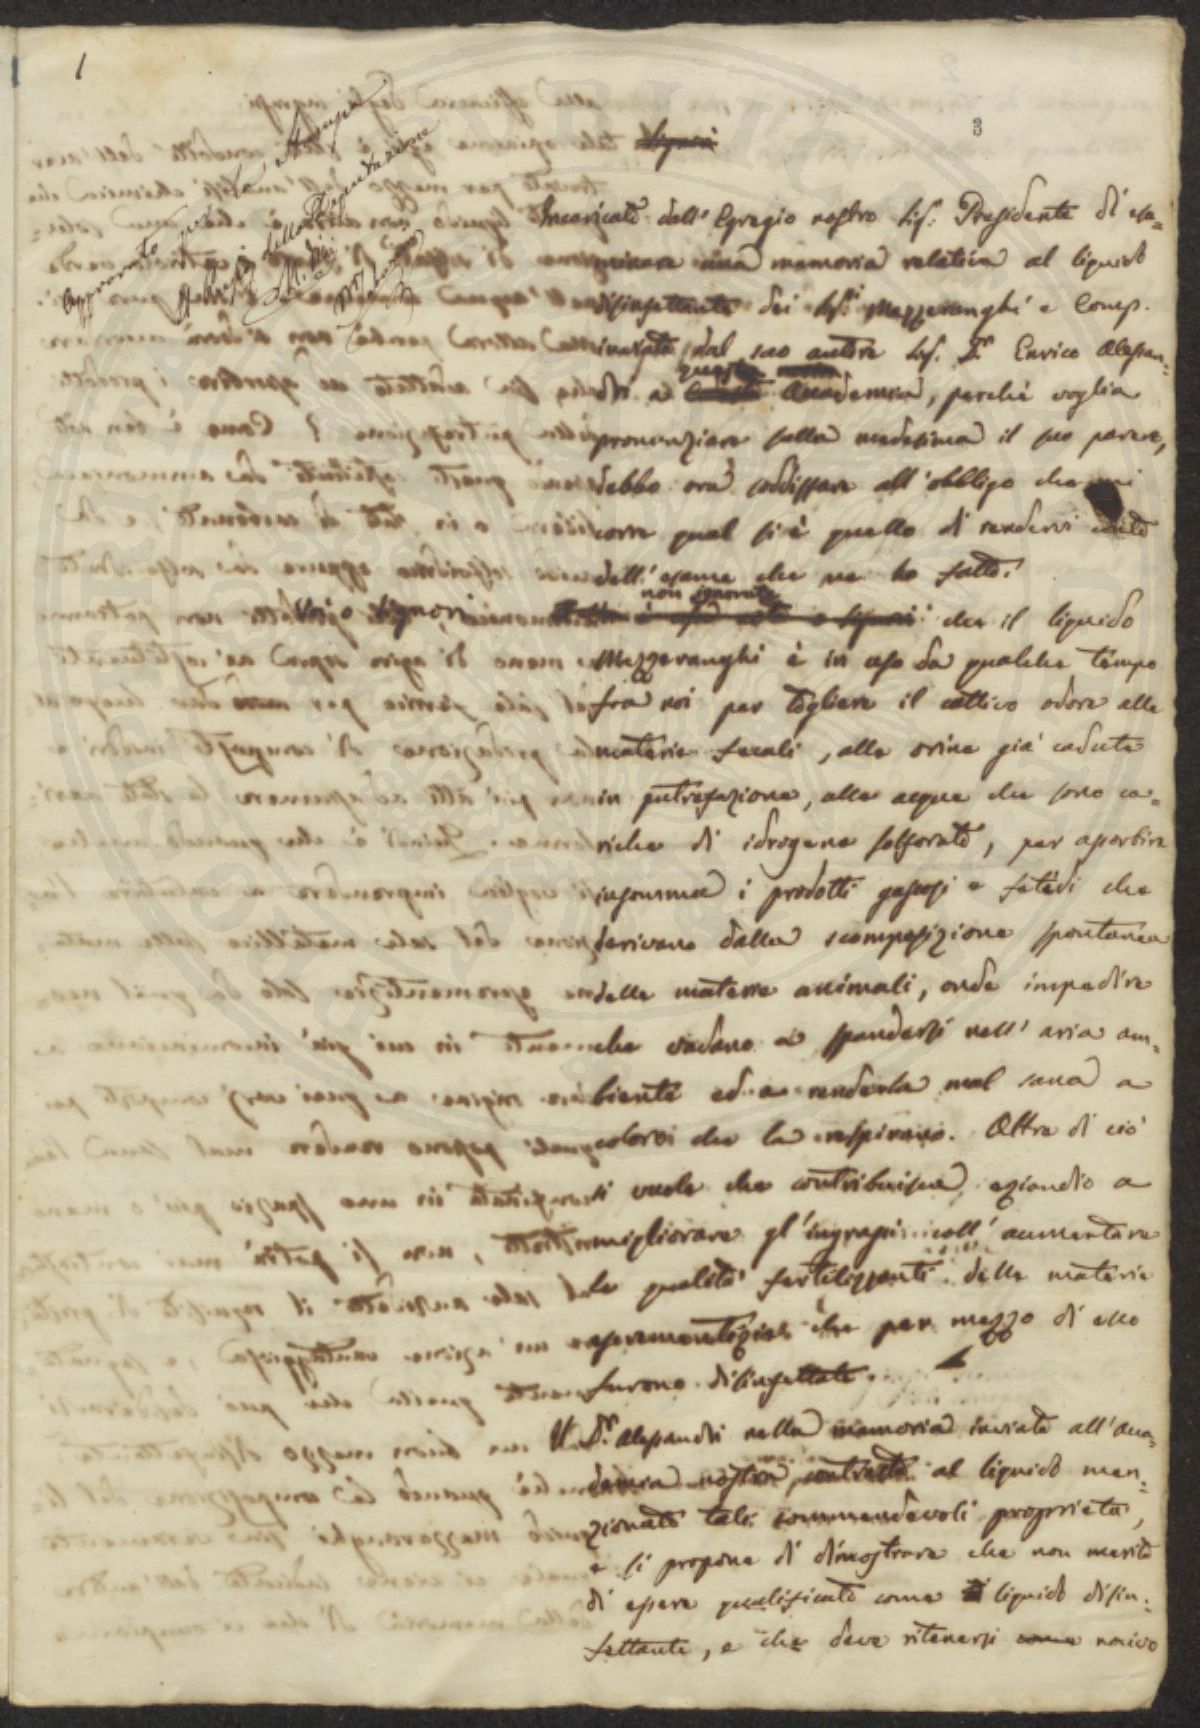 1
3
Approvato per la stampa
della Deputazione
Signori
Incaricato dall' Egregio nostro Sig. Presidente di esa=
minare una memoria relativa al liquido
disinfettante dei Sig.ri Mazzeranghi e Comp.
inviata dal suo autore Sig. Dr Enrico Alessan=
questa
dri a Accademia, perchè voglia
pronunziare sulla medesima il suo parere,
debbo ora soddisfare all' obbligo che mi
corre qual si è quello di rendervi conto
dell' esame che ne ho fatto.
non ignorate
Voi o Signori, che il liquido
Mazzeranghi è in uso da qualche tempo
fra noi per togliere il cattivo odore alle
materie fecali, alle orine già cadute
in putrefazione, alle acque che sono ca=
riche di idrogene solforato, per assorbire
insomma i prodotti gassosi e fetidi che
derivano dalla scomposizione spontanea
delle materie animali, onde impedire
che vadano a spandersi nell' aria am=
biente ed a renderla mal sana a
coloro che la respirano. Oltre di ciò
si vuole che contribuisca, eziandio a
migliorare gl' ingrassi coll' aumentare
le qualità fertilizzanti delle materie
escrementizie che per mezzo di esso
furono disinfettate.
Il Dr. Alessandri nella memoria inviata all' Acca=
demia nostra, contrasta al liquido men=
zionato tali commendevoli proprietà,
e si propone di dimostrare che non merita
di essere qualificato come liquido disin=
fettante, e che deve ritenersi come nocivo